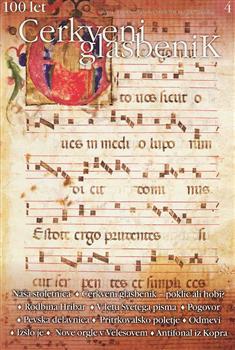 100 let
4
Cerkveni
glasbeniK
to vos sicut o
ues in medi o lupo rum
di cit do mi nus
Estote ergo prudentes si
Naša stoletnica • Cerkveni glasbenik – poklic ali hobi?
• Rodbina Hribar • V letu Svetega pisma • Pogovor
• Pevska delavnica • Pritrkovalsko poletje • Odmevi
• Izšlo je • Nove orgle v Velesovem • Antifonal iz Kopra